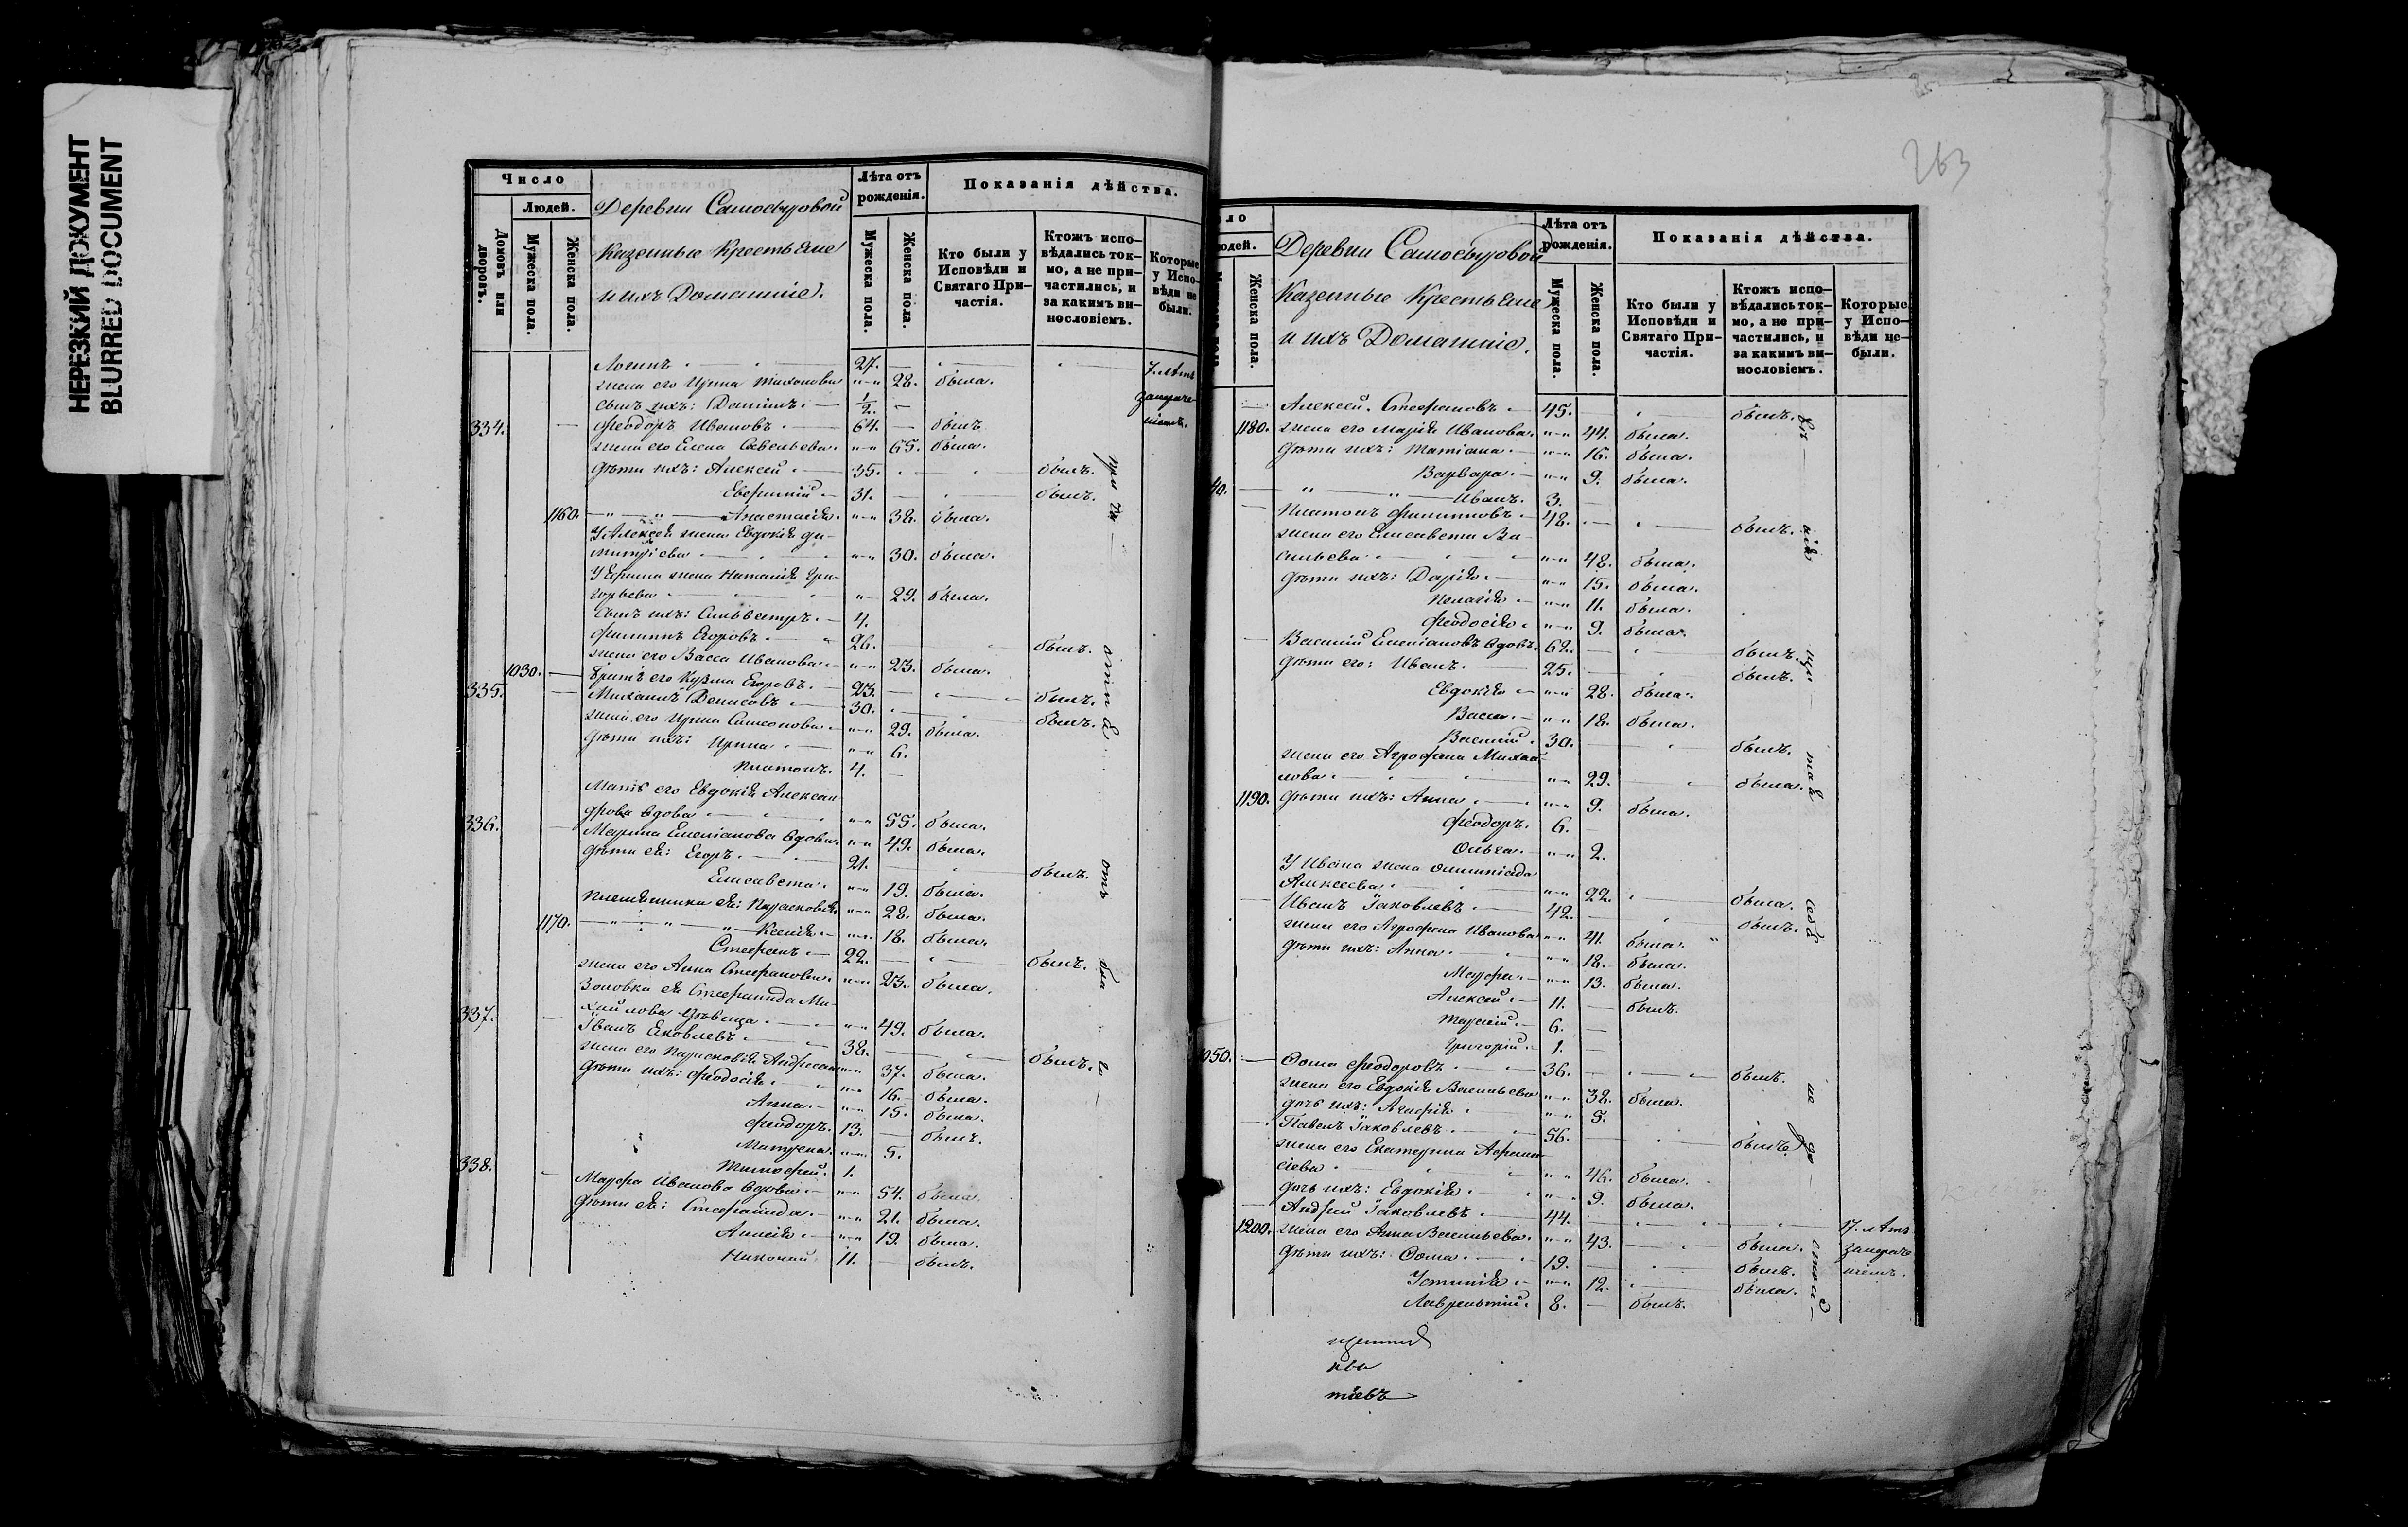 НЕРЕЗКИЙ ДОКУМЕНТ
BLURRED DOCUMENT
Число
Людей.
Домовъ или дворовъ.
Мужеска пола.
Женска пола.
Деревни
Казенные Крестьяне
и ихъ Домашніе.
Лѣта отъ рожденія.
Мужеска пола.
Женска пола.
Показанія дѣйства.
Кто были у Исповѣди и Святаго Причастія.
Ктожъ исповѣдались токмо, а не причастились, и за какимъ винословіемъ.
Которые у Исповѣди не были.
Логинъ 27. 7. лѣтъ
жена его Ирина Тихонова 28. была.
сынъ ихъ: 1/2.
334. Ѳеодоръ Ивановъ 64. былъ
жена его Елена Савельева. 65. была.
дѣти ихъ: Алексей 35. былъ.
Евфимій 31. былъ.
1160. Анастасія. 38. была.
У Алексея жена Евдокія Ди-
митріева 30. была.
У Ефима жена Наталія Гри-
горьева 29. была.
сынъ ихъ: Сильвестръ. 4.
Филиппъ Егоровъ. 26. былъ.
жена его Васса Иванова. 23. была.
1030. братъ его Кузма Егоровъ. 23. былъ.
335. Михаилъ Денисовъ 30. былъ.
жена его Ирина Симеонова 29. была.
дѣти ихъ: Ирина 6.
Платонъ. 4.
Мать его Евдокія Алексан-
дрова вдова 55. была.
336. Марина Емеліанова вдова. 49. была.
дѣти ея: Егоръ. 21. былъ.
Елисавета. 19. была.
племянники ея: Парасковія. 28. была.
1170. Ксенія 18. была.
Стефанъ 22. былъ.
жена его Анна Стефанова. 23. была.
Золовка ея Стефанида Ми-
хайлова дѣвица. 49. была.
337. Иванъ Яковлевъ 38. былъ.
жена его Парасковія Андреева 37. была.
дѣти ихъ: Ѳеодосія. 16. была.
Анна. 15. была.
Ѳеодоръ. 13. былъ.
Матрена. 5.
Тимофей. 1.
338. Мавра Иванова вдова. 54. была.
дѣти ея: Стефанида. 21. была.
19. была.
Николай 11. былъ.
263
Людей.
Женска пола.
Деревни
Казенные Крестьяне
и ихъ Домашніе.
Лѣта отъ рожденія.
Мужеска пола.
Женска пола.
Показанія дѣйства.
Кто были у Исповѣди и Святаго Причастія.
Ктожъ исповѣдались токмо, а не причастились, и за какимъ винословіемъ.
Которые у Исповѣди небыли.
Алексей Стефановъ 45. былъ.
1180. жена его Марія Иванова. 44. была.
дѣти ихъ: Татіана. 16. была.
Варвара. 9. была.
40. Иванъ. 3.
Платонъ Филипповъ 48. былъ.
жена его Елисавета Ва-
сильева 48. была.
дѣти ихъ: Дарія. 15. была.
Пелагія 11. была.
Ѳеодосія 9. была.
Василій Емеліановъ вдовъ. 62. былъ.
дѣти его: Иванъ. 25. былъ.
Евдокія 28. была.
Васса. 18. была.
Василій. 30. былъ.
жена его Агрофена Михаи-
лова 29. была.
1190. дѣти ихъ: Анна. 9. была.
Ѳеодоръ. 6.
Ольга. 2.
У Ивана жена Олимпіада
Алексеева 22. была.
Иванъ Іаковлевъ 42. былъ.
жена его Агрофена Иванова 41. была.
дѣти ихъ: Анна. 18. была.
Мавра. 13. была.
Алексей 11. былъ.
6.
Григорій. 1.
1050. Ѳома Ѳеодоровъ 36. былъ.
жена его Евдокія Васильева 38. была.
дочь ихъ: Агафія 5.
Павелъ Іаковлевъ 56. былъ.
жена его Екатерина Афана-
сіева 46. была.
дочь ихъ: Евдокія. 9. была.
Андрей Іаковлевъ 44. 17. лѣтъ
1200. жена его Анна Васильева. 43. была.
дѣти ихъ: Ѳома. 19. былъ.
Устинія 12. была.
Лаврентій. 8. былъ.